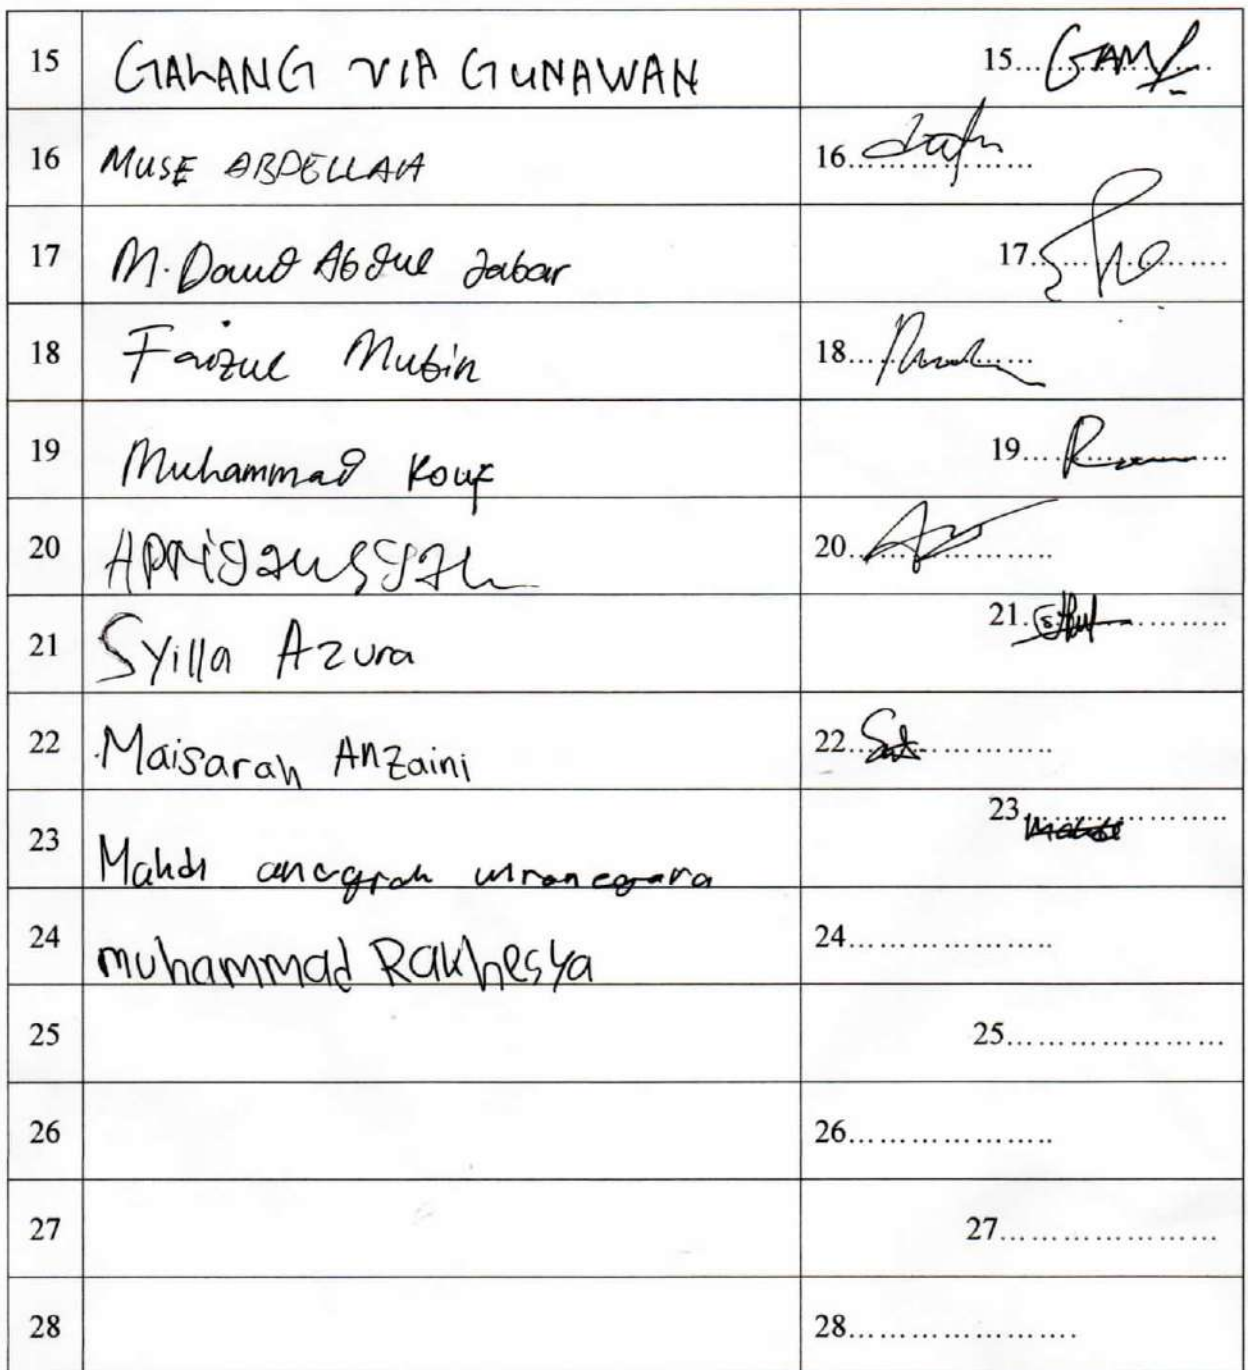 15 GALANG VIA GUNAWAN 15...
16 MUSE ABDELLAH 16...
17 M. Daud Abdul Jabar 17...
18 Faizul Mubin 18...
19 Muhammad Rouf 19...
20 20...
21 Syilla Azura 21...
22 Maisarah Anzaini 22...
23 Mahdi anugrah wiranegara 23...
24 muhammad Rakhesya 24...
25 25...
26 26...
27 27...
28 28...